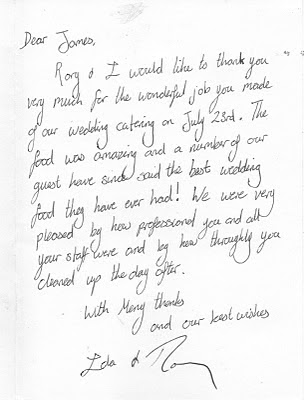 Dear James,
Rory & I would like to thank you
very much for the wonderful job you made
of our wedding catering on July 23rd. The
food was amazing and a number of our
guest have since said the best wedding
food they have ever had! We were very
pleased by how professional you and all
your staff were and by how throughly you
cleaned up the day after.
With Meny thanks
and our best wishes
&